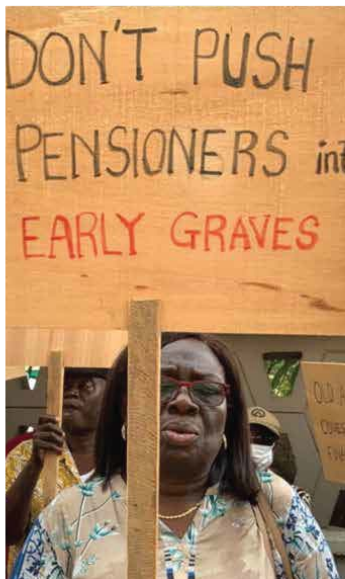 DON'T PUSH
PENSIONERS int
EARLY GRAVES
OLD A
COMES